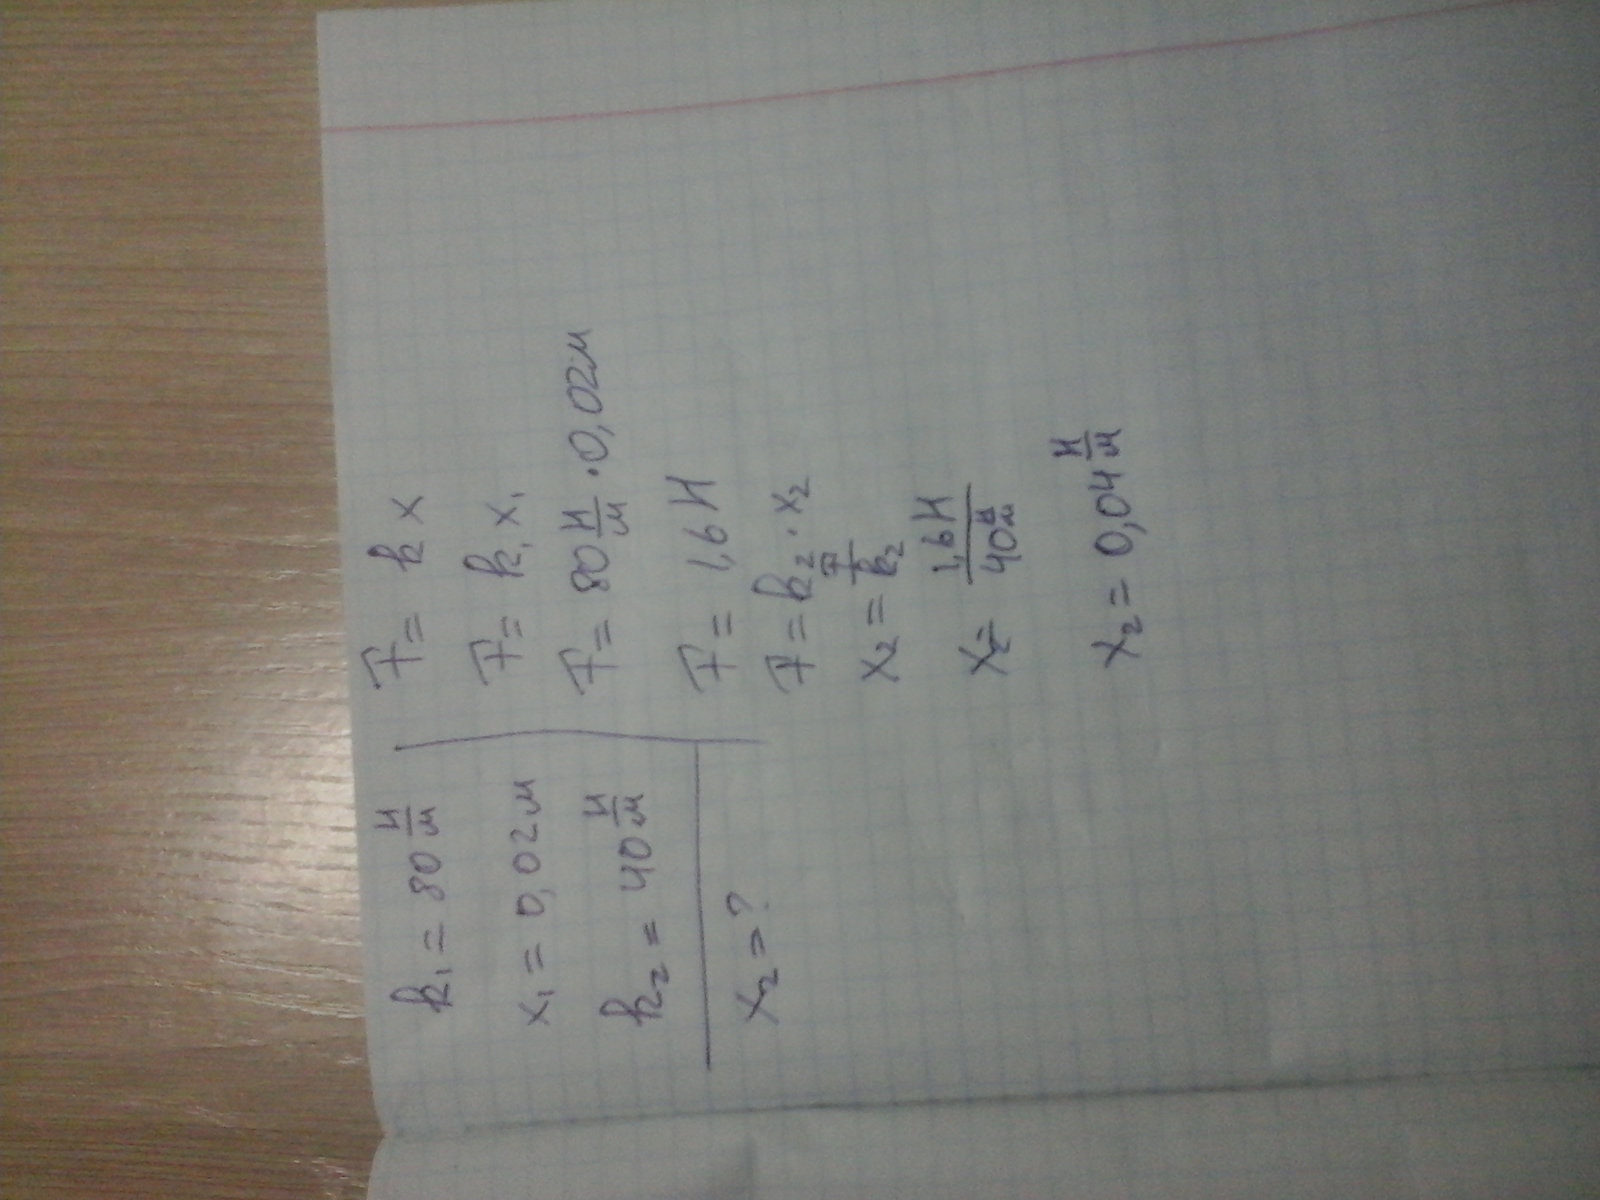 k₁ = 80 Н/м
x₁ = 0,02 м
k₂ = 40 Н/м
x₂ = ?
F = k x
F = k₁ x₁
F = 80 Н/м · 0,02 м
F = 1,6 Н
F = k₂ · x₂
x₂ = F/k₂
x₂ = 1,6 Н / 40 Н/м
x₂ = 0,04 Н/м